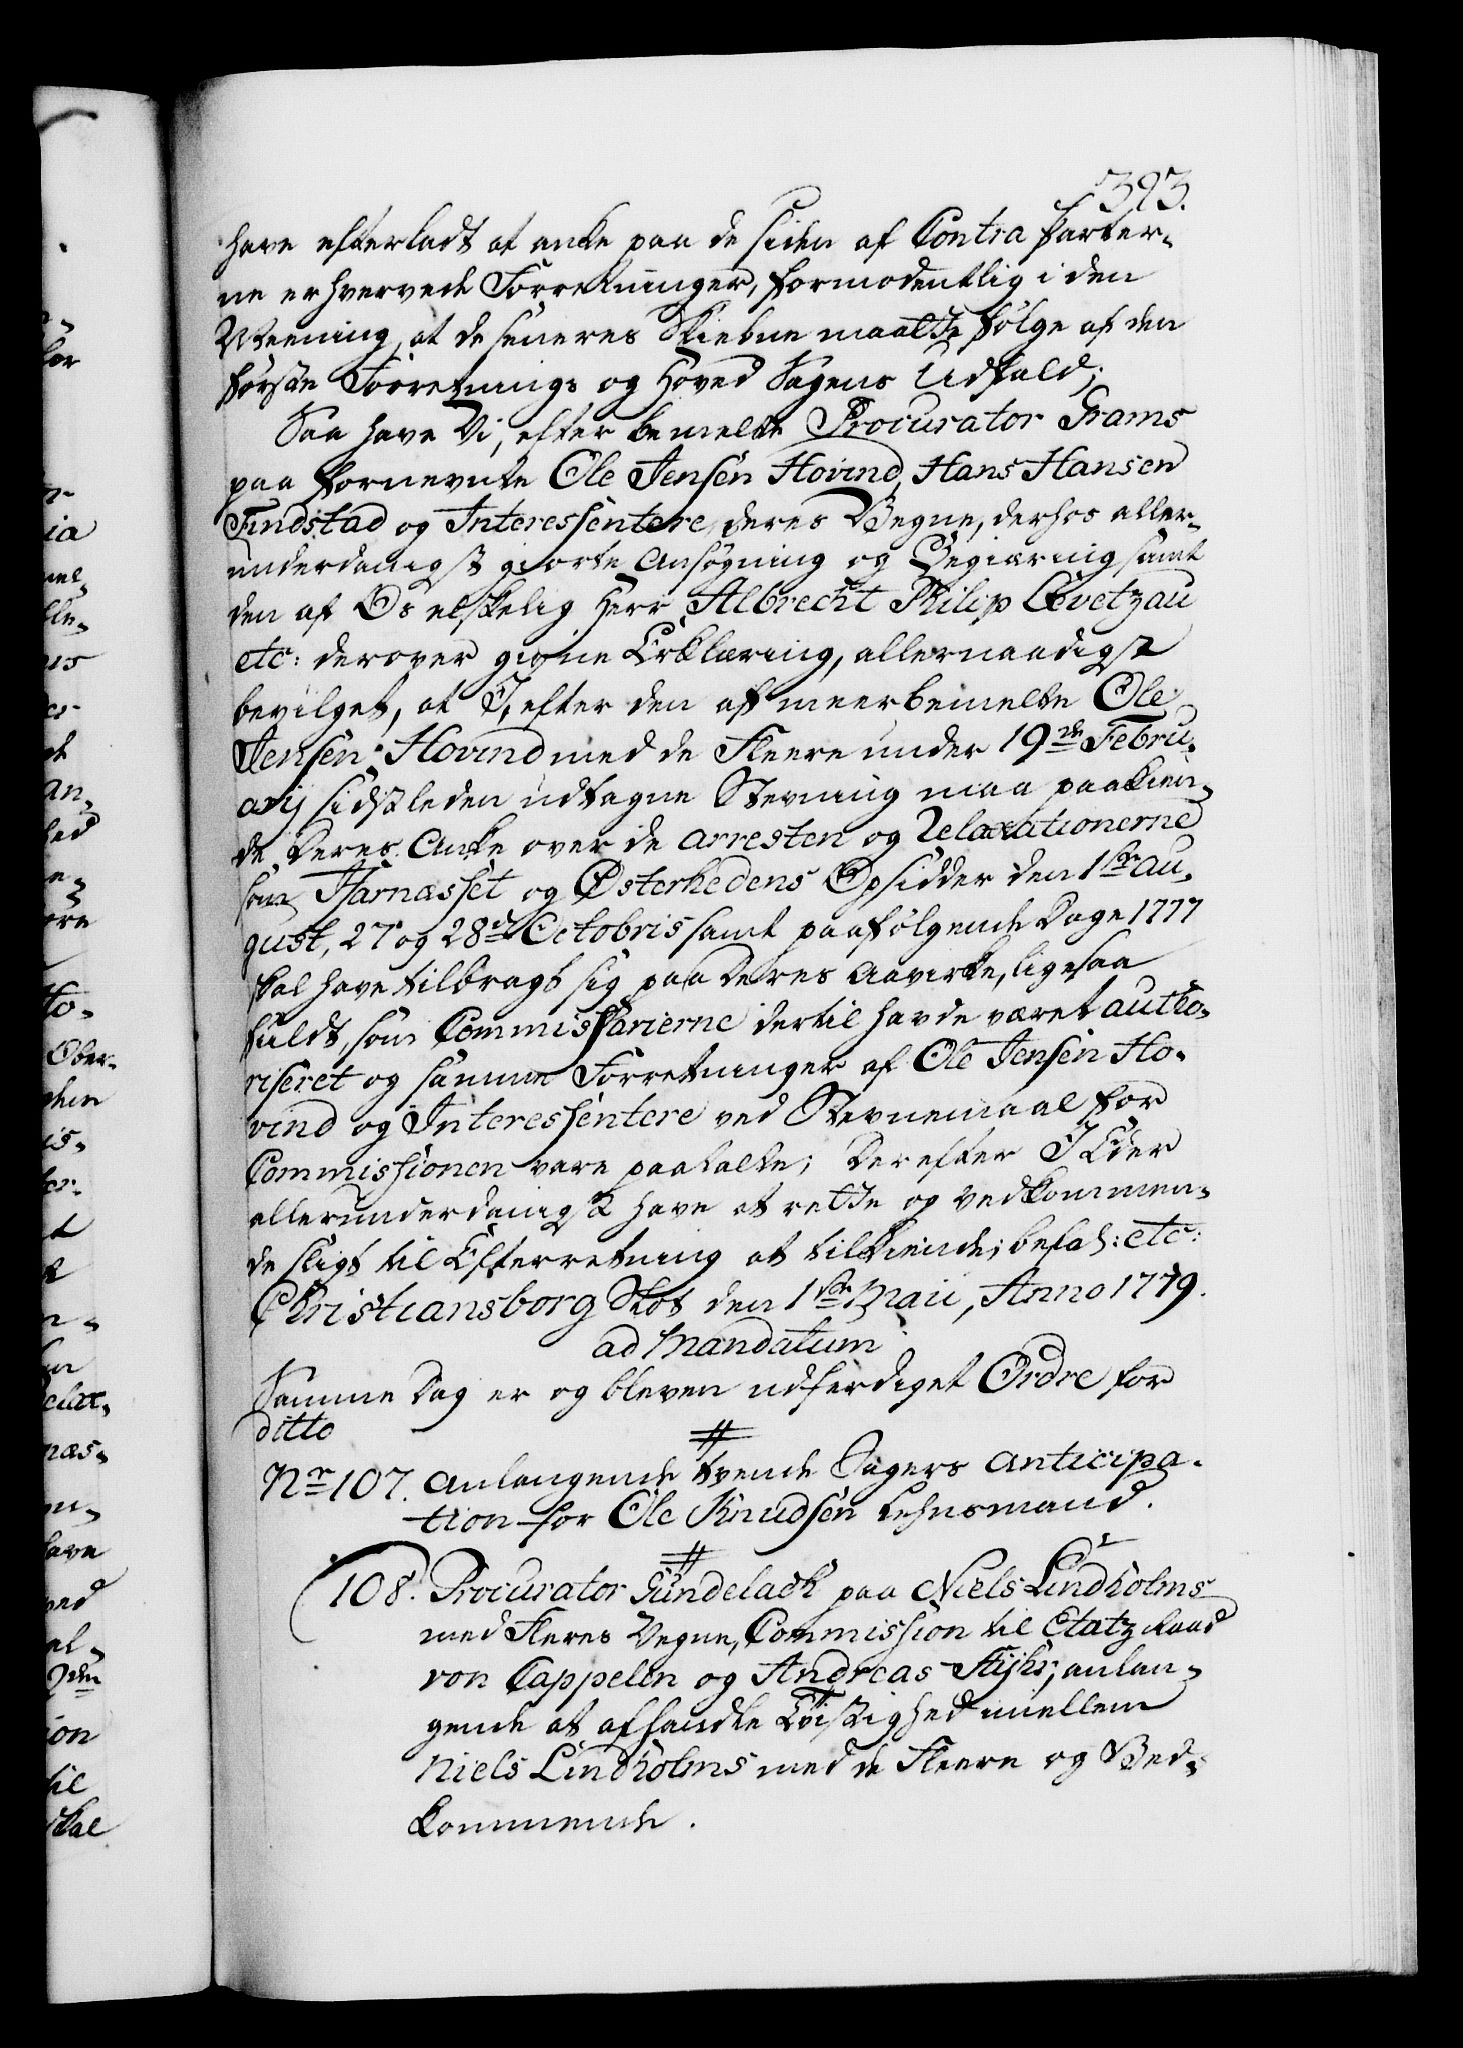 393.
have efterladt at anke paa de siden af Contra Parter-
ne erhvervede Forretninger, formodentlig i den
Meening, at de seneres Skiebne maatte følge af den
første Forretnings og Hoved Sagens Udfald;
Saa have Vi, efter bemelte Procurator Grams
paa fornevnte Ole Jensen Hovind, Hans Hansen
Findstad og Interessentere deres Vegne, derhos aller-
underdanigst giorte Ansøgning og Begiæring samt
den af Os elskelig Herr Albrecht Philip Levetzau
etc: derover givne Erklæring, allernaadigst
bevilget, at I, efter den af meerbemelte Ole
Jensen Hovind med de Fleere under 19de Febru-
arij sidstleden udtagne Stevning maa paakien-
de Deres Anke over de arresten og Relaxationerne
som Harnæsset og Østerhedens Opsidder den 1ste Au-
gust, 27 og 28de Octobris samt paafølgende Dage 1777
skal have tilbragt sig paa Deres Aavirke, ligesaa
fuldt, som Commissarierne dertil havde været autho-
riseret og samme Forretninger af Ole Jensen Ho-
vind og Interessentere ved Stevnemaal for
Commissionen vare paatalte; Derefter I Eder
allerunderdanigst have at rette og vedkommen-
de sligt til Efterretning at tilkiende; befal: etc:
Christiansborg Slot den 1ste Maii, Anno 1779.
ad Mandatum
Samme Dag er og bleven udferdiget Ordre for
ditto
Nr 107. Anlangende tvende Sagers Anticipa-
tion for Ole Knudsen Lehnsmand.
108. Procurator Gundelach paa Niels Lindholms
med Fleres Vegne, Commission til Etatz Raad
von Cappelen og Andreas Flyhr, anlan-
gende at afhandle Tvistighed mellem
Niels Lindholms med de Fleere og Ved-
kommende.